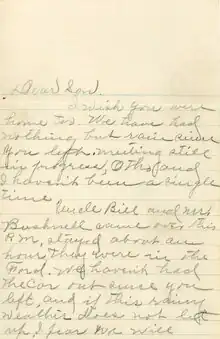 Dear Son.
I wish you were
home too. We have had
nothing but rain since
you left. meeting still
in progress, Otho, and
I haven't been a single
time
Uncle Bill and Mr
Bushnell came over this
P.M., stayed about an
hour They were in the
Ford. We haven't had
the Car out since you
left, and if this rainy
weather does not let
up, I fear we will